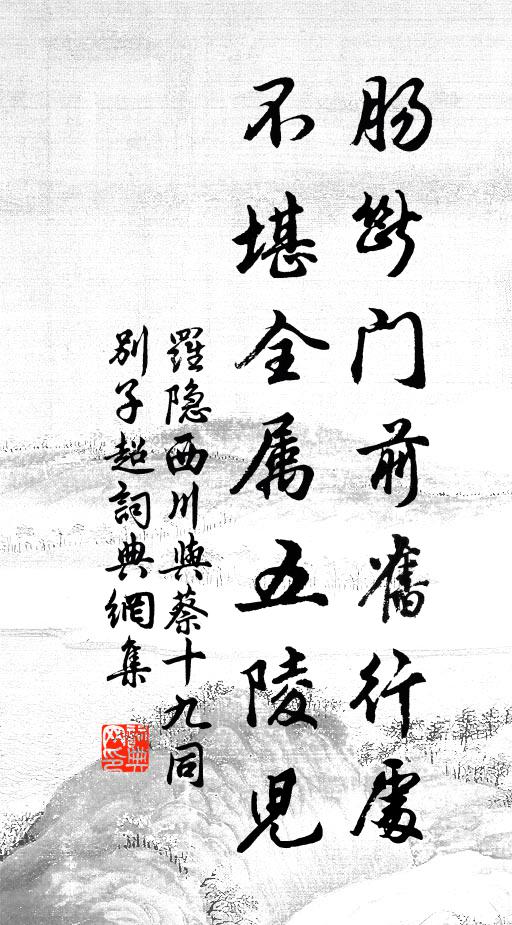 肠断门前旧行处
不堪全属五陵児
羅隐西川與蔡十九同
别子超詞典網集